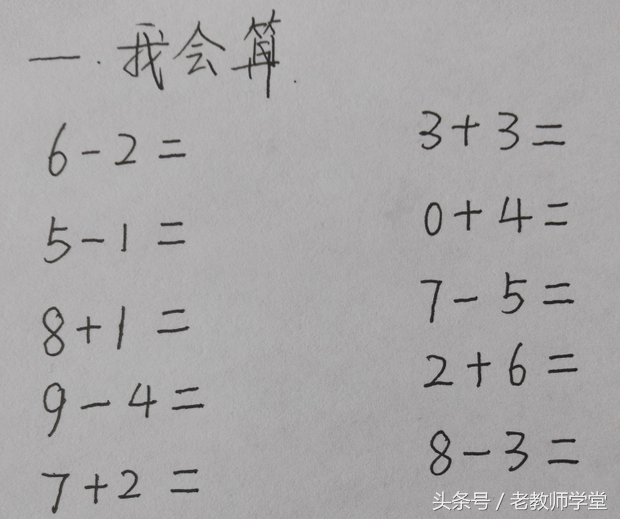 一.我会算.
6-2=
3+3=
5-1=
0+4=
8+1=
7-5=
9-4=
2+6=
7+2=
8-3=
头条号 / 老教师学堂